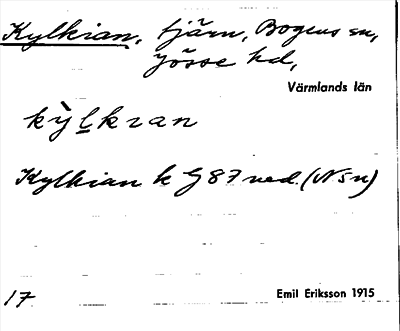 Kylkian, tjärn, Bogens sn,
Jösse hd,
Värmlands län
kỳlkran
Kylkian k G 87 ned. (N 5 n)
17
Emil Eriksson 1915